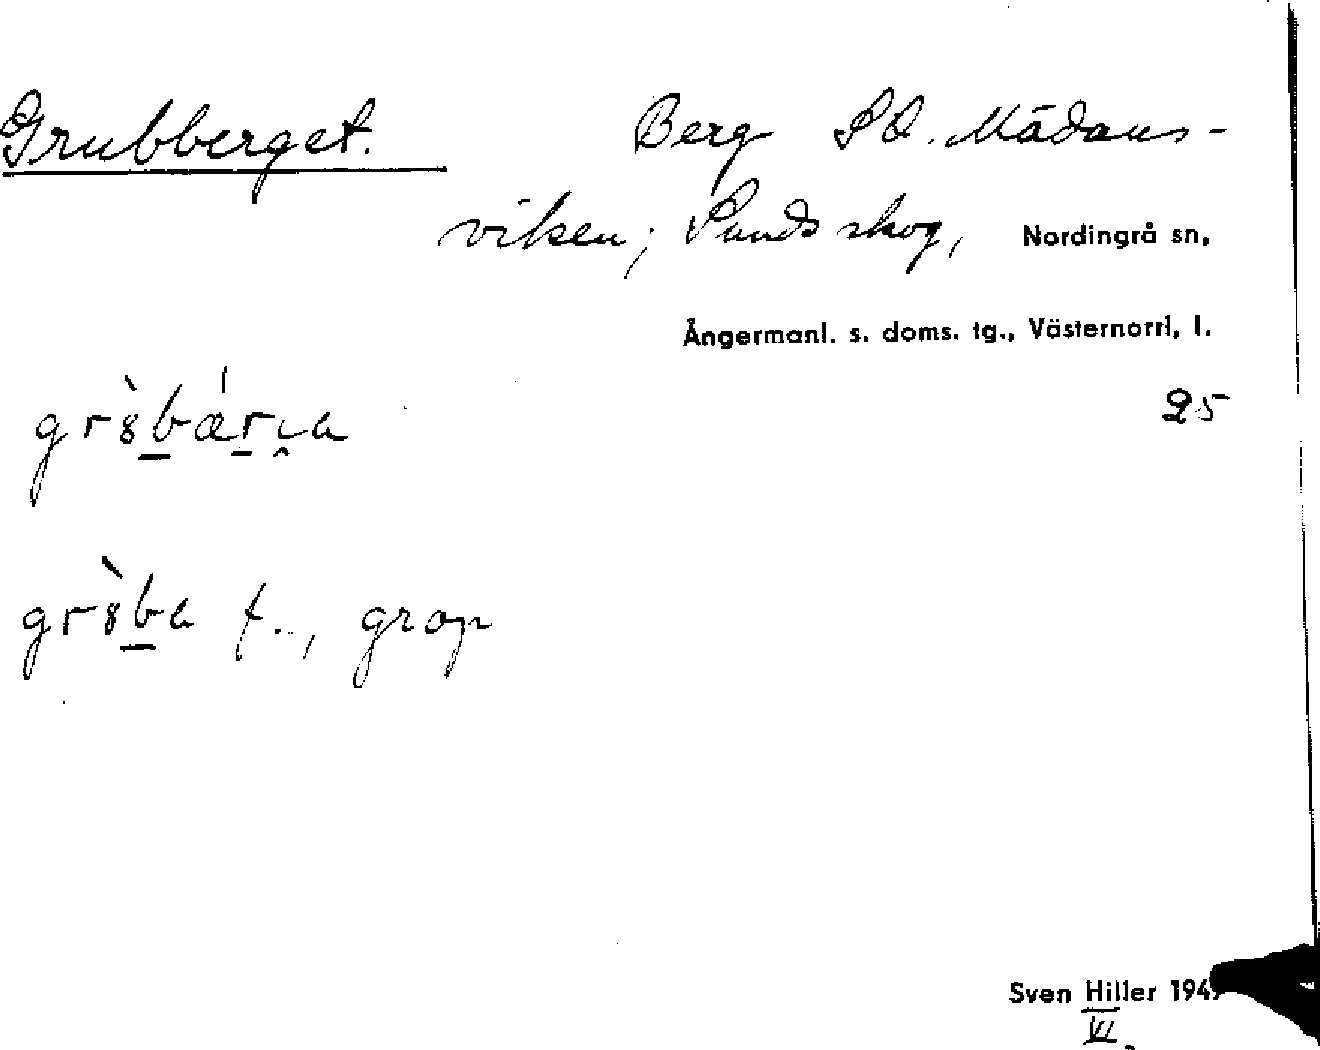 Grubberget. Berg SO. Mädans-
viken; Sunds skog, Nordingrå sn,
Ångermanl. s. doms. tg., Västernorrl. l.
25
grȣ̀bárɩa
grȣ̀ba f., grop
Sven Hiller
VI